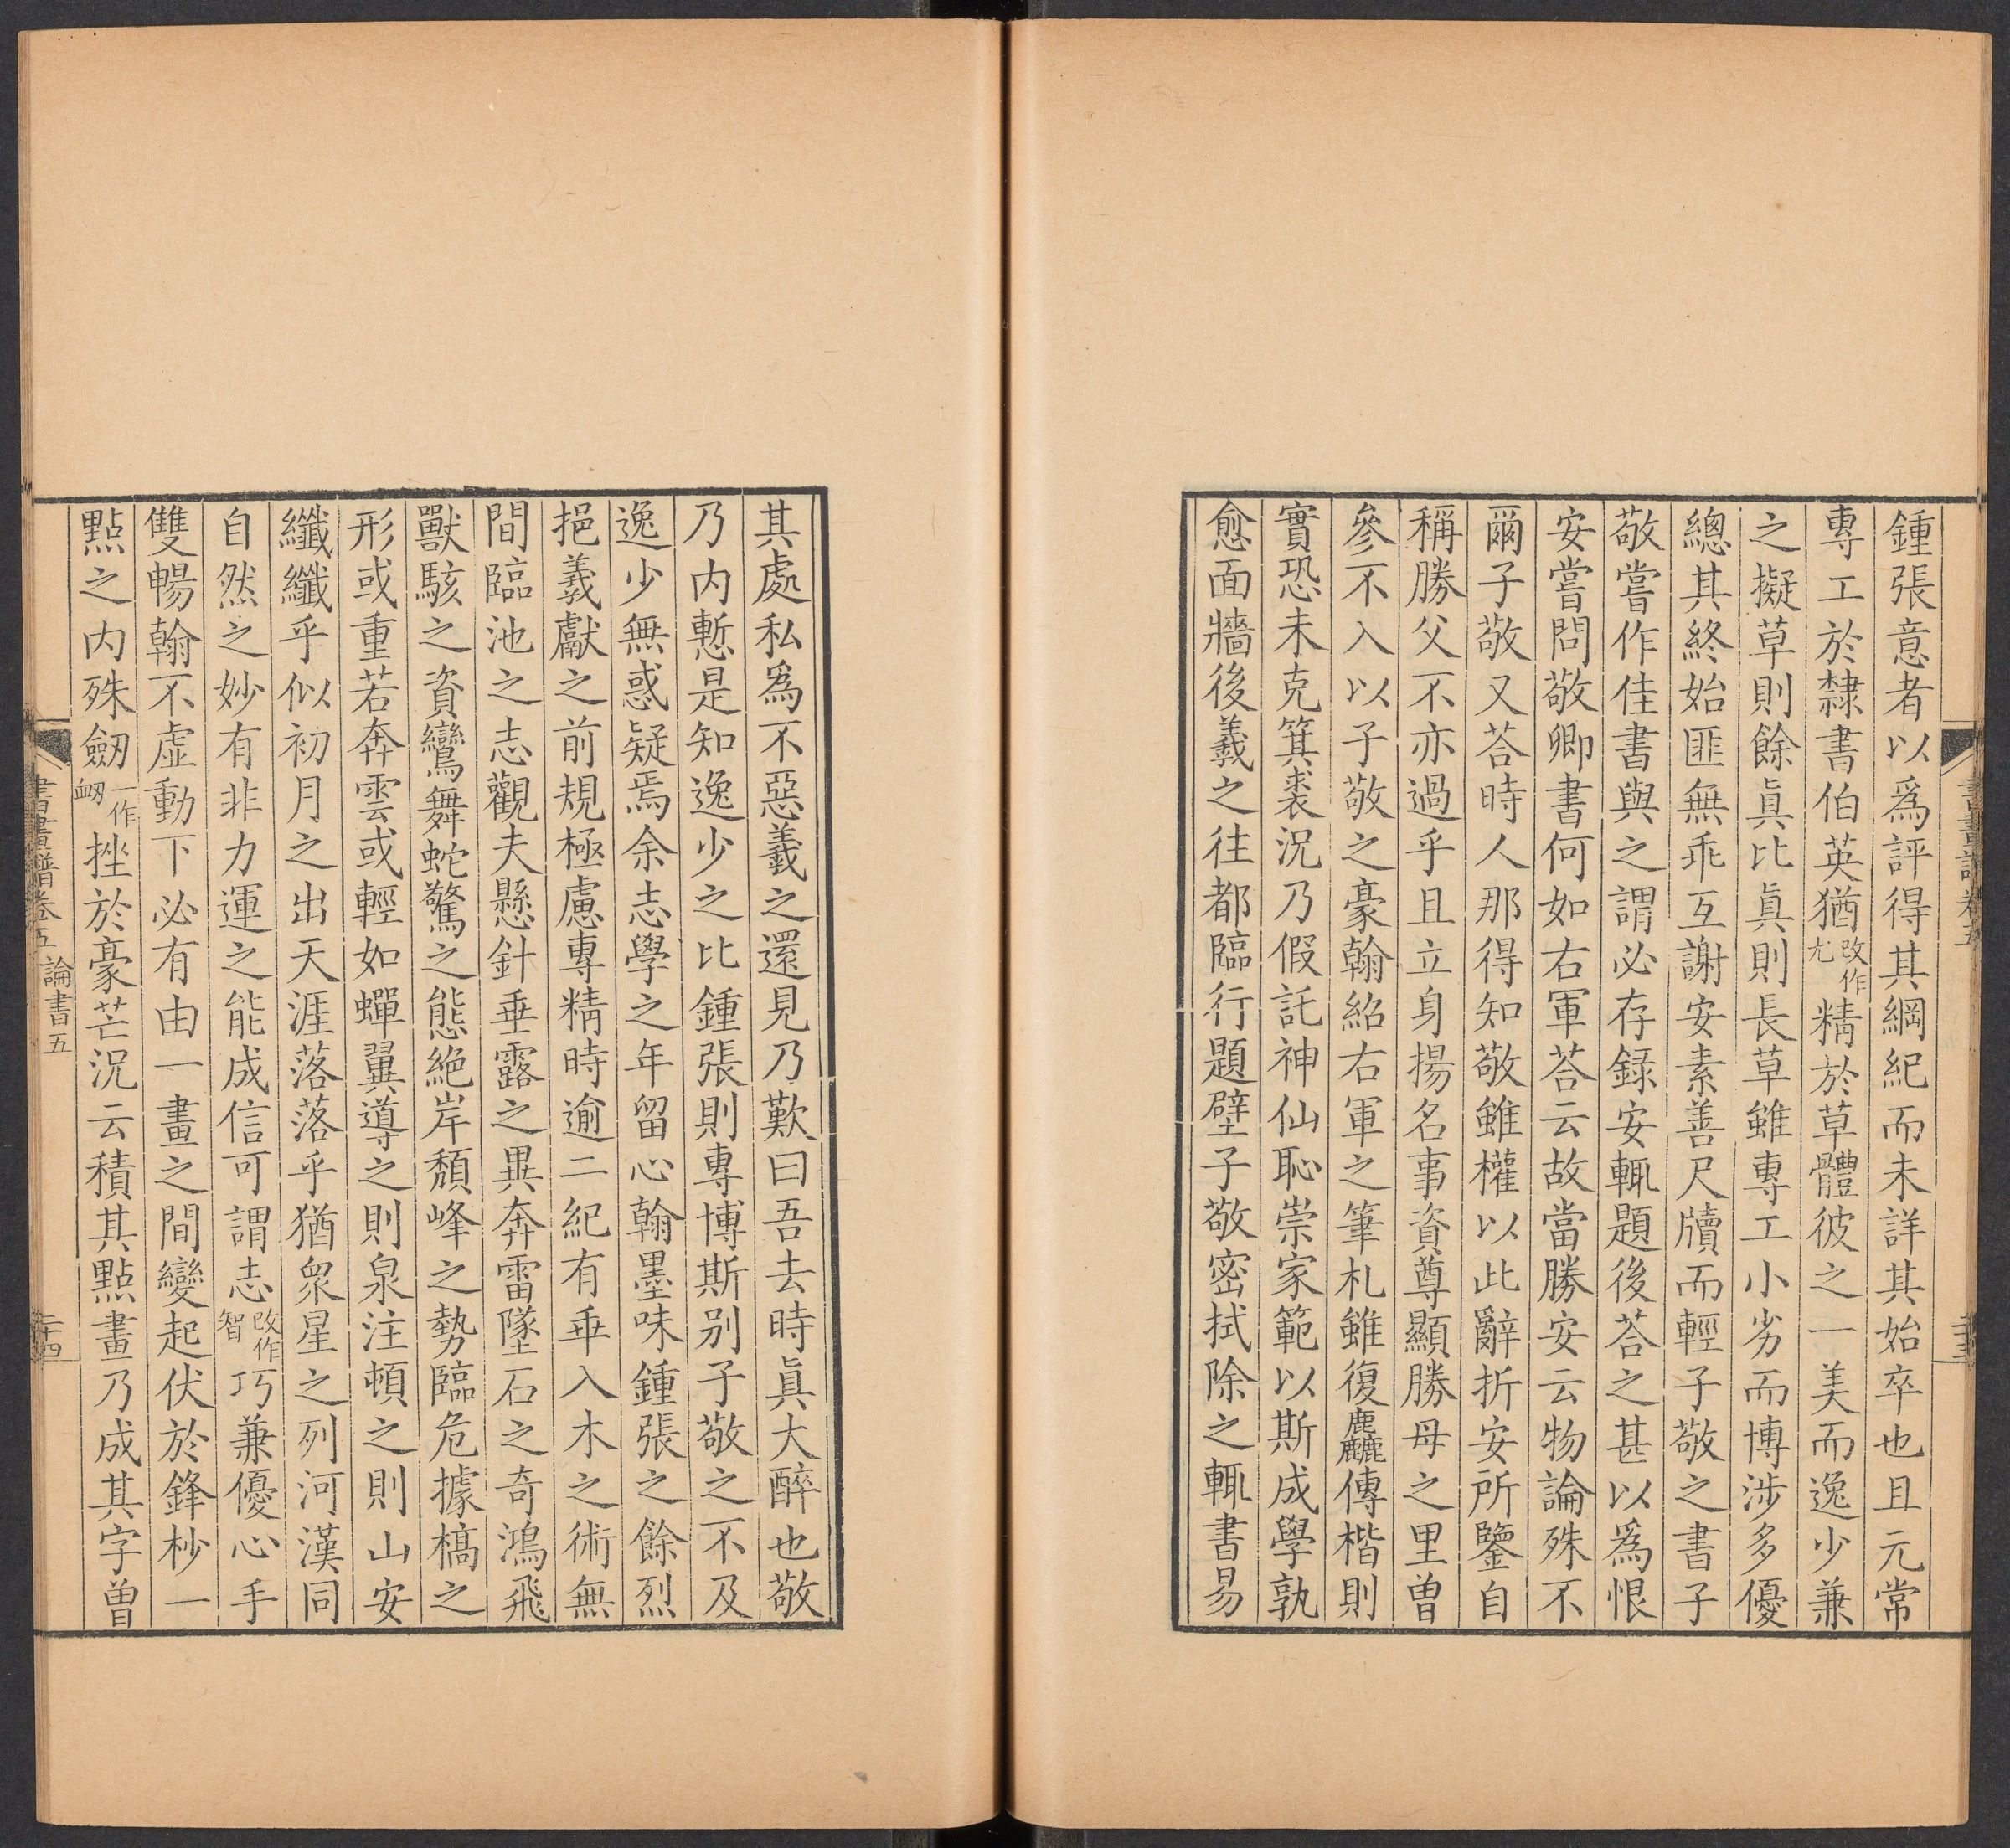 鍾張意者以爲評得其綱紀而未詳其始卒也且元常
專工於隸書伯英猶改作尤精於草體彼之一美而逸少兼
之擬草則餘眞比眞則長草雖專工小劣而博涉多優
總其終始匪無乖互謝安素善尺牘而輕子敬之書子
敬嘗作佳書與之謂必存録安輒題後荅之甚以爲恨
安嘗問敬卿書何如右軍荅云故當勝安云物論殊不
爾子敬又荅時人那得知敬雖權以此辭折安所鑒自
稱勝父不亦過乎且立身揚名事資尊顯勝母之里曾
參不入以子敬之豪翰紹右軍之筆札雖復麤傳楷則
實恐未克箕裘況乃假託神仙恥崇家範以斯成學孰
愈面牆後羲之往都臨行題壁子敬密拭除之輒書易
其處私爲不惡羲之還見乃歎曰吾去時眞大醉也敬
乃内慙是知逸少之比鍾張則專博斯別子敬之不及
逸少無惑疑焉余志學之年留心翰墨味鍾張之餘烈
挹羲獻之前規極慮專精時逾二紀有乖入木之術無
間臨池之志觀夫懸針垂露之異奔雷墜石之奇鴻飛
獸駭之資鸞舞蛇驚之態絶岸頹峰之勢臨危據槁之
形或重若奔雲或輕如蟬翼導之則泉注頓之則山安
纖纖乎似初月之出天涯落落乎猶衆星之列河漢同
自然之妙有非力運之能成信可謂志改作智巧兼優心手
雙暢翰不虛動下必有由一畫之間變起伏於鋒杪一
點之内殊衂一作衄挫於豪芒況云積其點畫乃成其字曾
書畫譜卷五 論書五 二十四